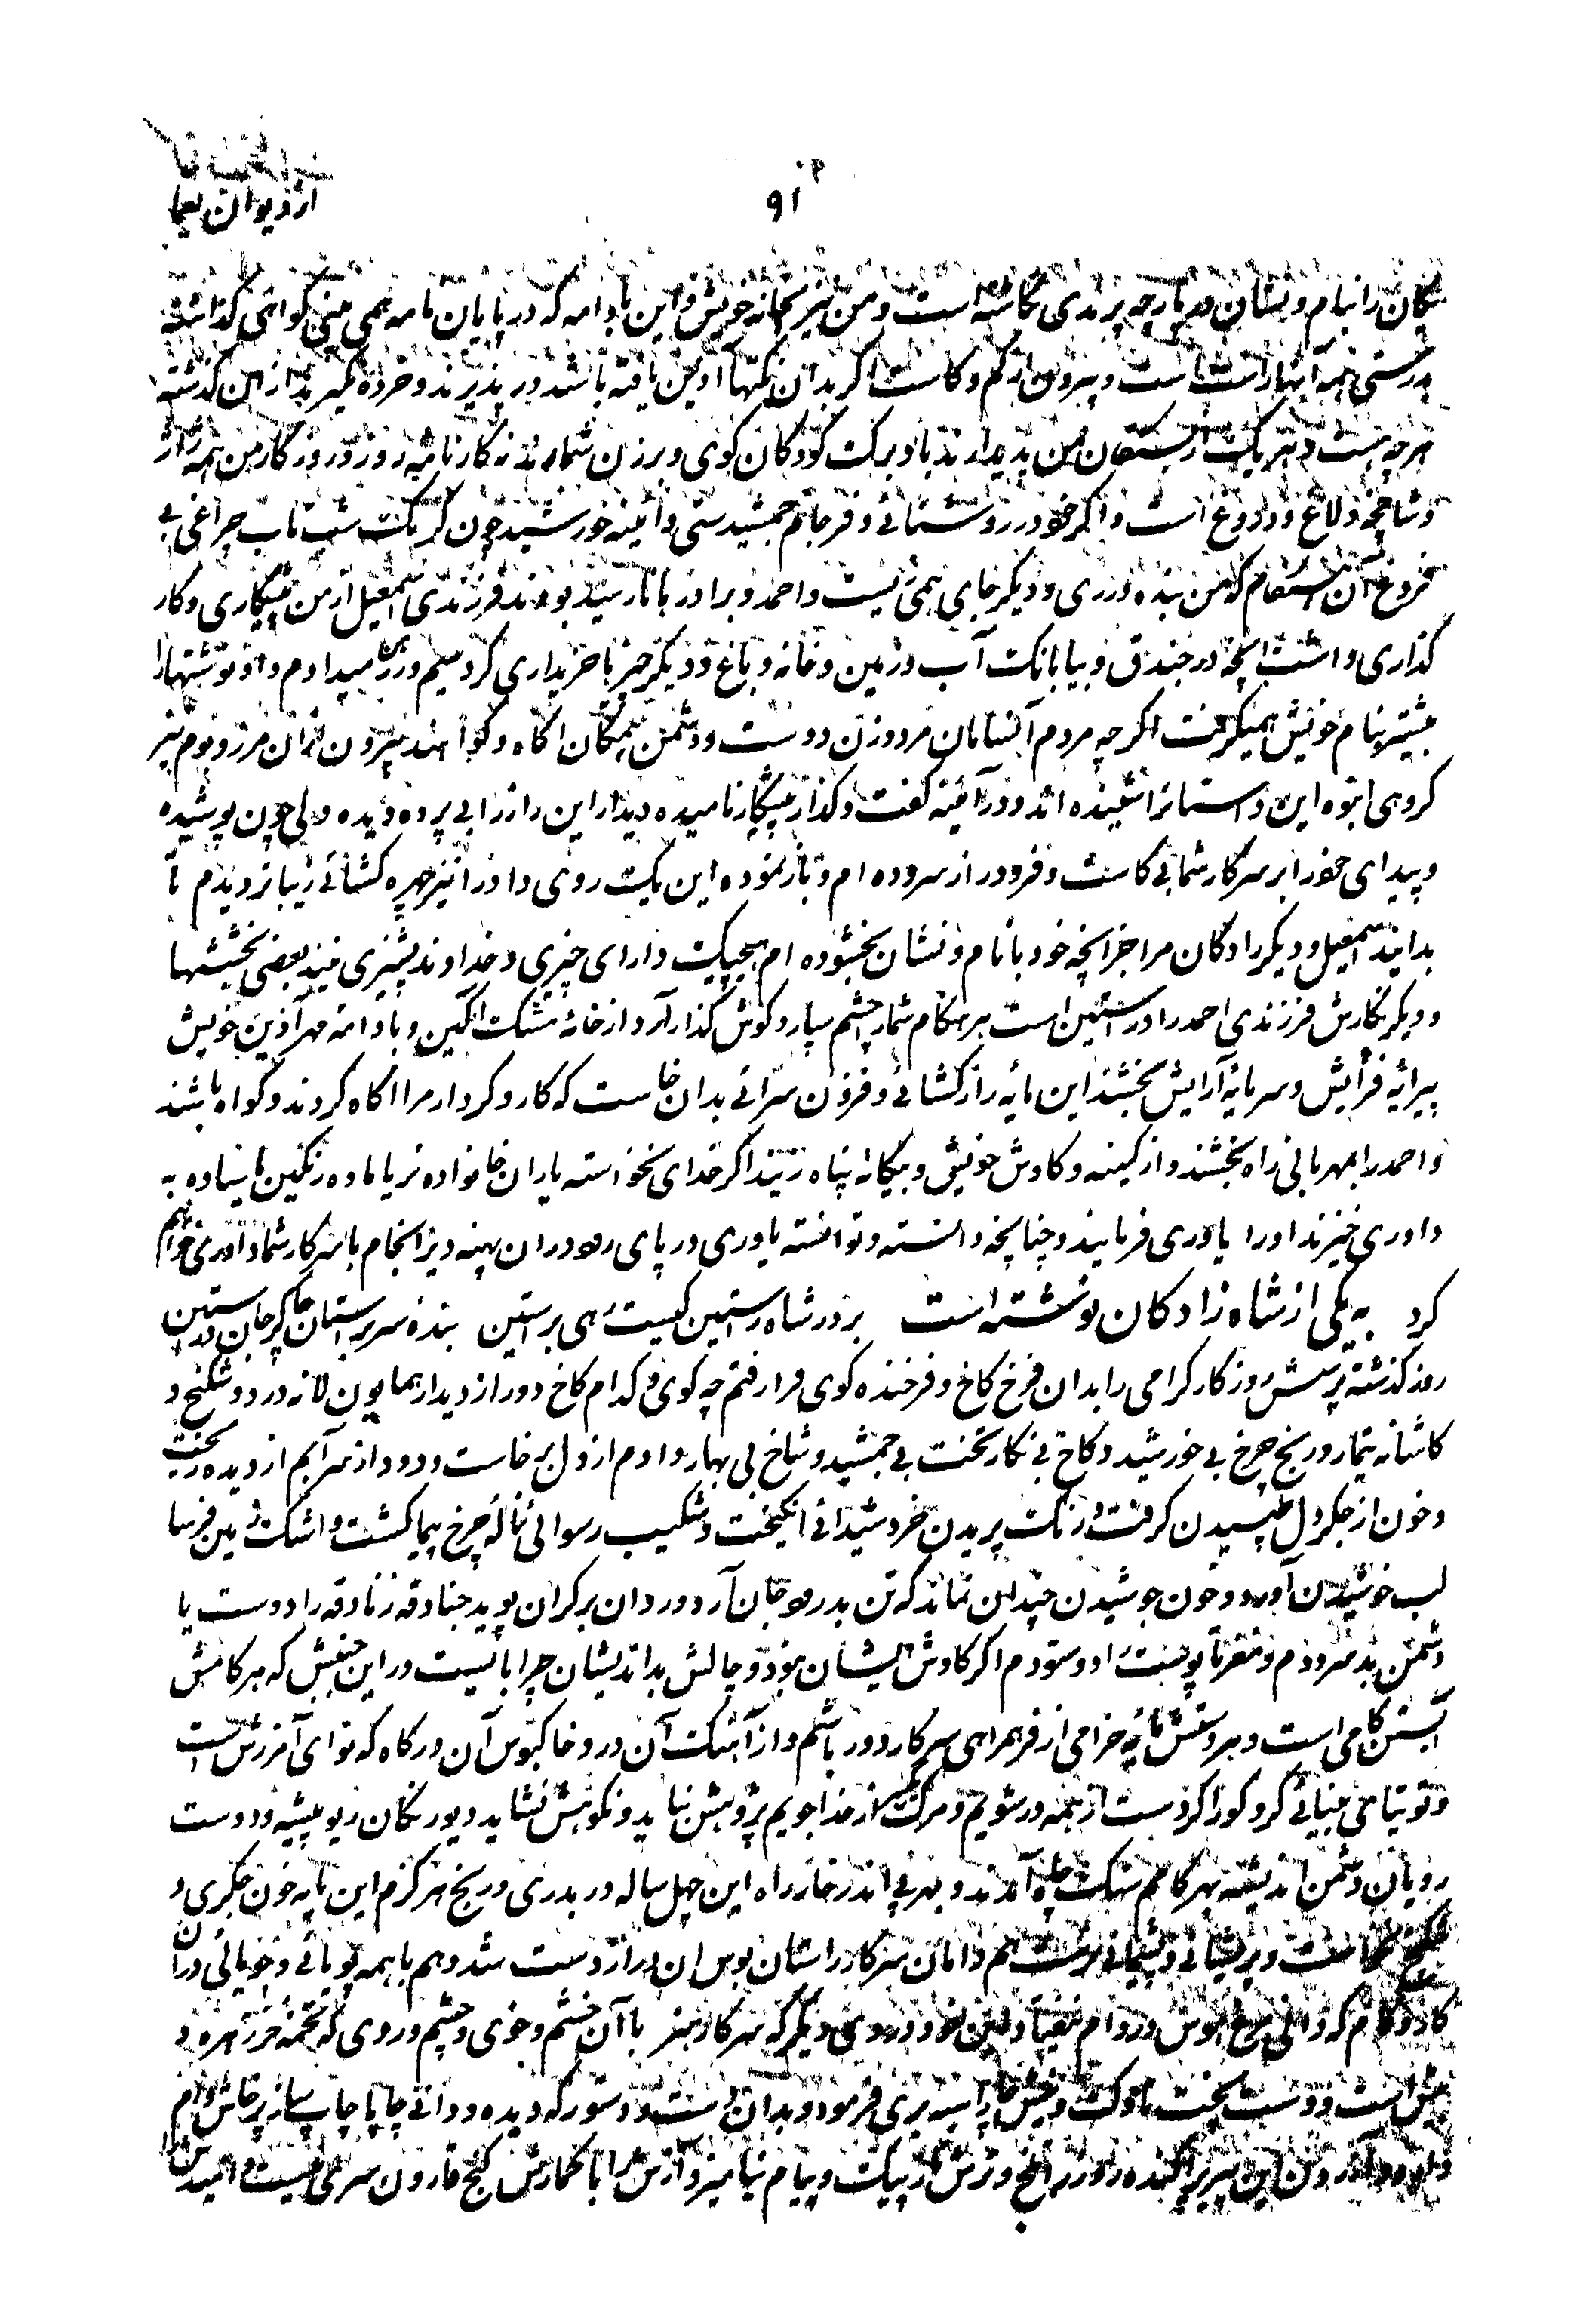 از دیوان یغما
۹۱
یکان را بنام و نشان هر پارچه پرندی نگاشته است و من نیز بخانه خویش این بادامه که در پایان نامه همی بینی گواهی گذاشته
درستی همه آنها راست است و بیرون از کم و کاست اگر بدان نکتها آذین یافته باشد در پذیرند و خرده نگیرند از این گذشته
هرچه هست و هریک از بستگان من پدیدارند با و برکت کودکان کوی و برزن شمارند نه کارنامه روز و روزگار من همه راز
و شاخچه و لاغ و دروغ است و اگر خود در روشنائی و فر جام جمشیدستی و آئینه خورشید چون کرمک شب تاب چراغی بی
فروغ آن که من بنده در ری و دیگر جای همی زیست و احمد و برادر با نارسیده بودند فرزندی اسمعیل از من پیشکاری و کار
گذاری داشت آنچه در جندق و بیابانک آب و زمین و خانه و باغ و دیگر چیزها خریداری کرد سیم و زر من میدادم و او نوشتها را
بیشتر بنام خویش همیگرفت اگرچه مردم آنسامان مرد و زن دوست و دشمن همگان آگاه و گواهند بیرون از آن مرز و بوم نیز
گروهی انبوه این داستانرا شنیده اند و در آئینه گفت و گذار پیشکار نامیده دیدار این راز را بی پرده دیده ولی چون پوشیده
و پیدای خود را بر سرکار شما بی کاست و فزود راز سروده ام و باز نموده این یک روی داد را نیز چهره گشائی زیبا تر دیدم تا
بدانید اسمعیل و دیگر زادگان مرا جز آنچه خود با نام و نشان بخشوده ام هیچیک دارای چیزی و خداوند پشیزی نیند بعضی بخششها
و دیگر نگارش فرزندی احمد را در آستین است بر هنگام شمار چشم سپار و گوش گذار آرد از خانه مشک آگین و بادامه مهر آذین خویش
پیرایه فزایش و سرمایه آرایش بخشند این مایه راز گشائی و فزون سرائی بدان خاست که کار و کردار مرا آگاه گردند و گواه باشند
و احمد را بمهربانی راه بخشند و از کینه و کاوش خویش و بیگانه پناه زیند اگر خدای نخواسته یاران خانواده نر یا ماده رنگین یا ساده به
داوری خیزند او را یاوری فرمایند و چنانچه دانسته و توانسته یاوری در پای رود در آن پهنه دیز انجام با سرکار شما داوری خواهم
کرد به یکی از شاه زادگان نوشته است بر در شاه راستین کیست رهی بر آستین بنده سر بر آستان چاکر جان در آستین
روز گذشته پرسش روزگار گرامی را بدان فرخ کاخ و فرخنده کوی فرا رفتم چه کوی و کدام کاخ دور از دیدار همایون لانه درد و شکنج و
کاشانه تیمار و رنج چرخ بی خورشید و کاخ بی نگار تخت بی جمشید و شاخ بی بهار دادم از دل برخاست و دود از سر آبم از دیده ریخت
و خون از جگر دل طپیدن گرفت و رنگ پریدن خروشیدائی انگیخت و شکیب رسوائی ناله چرخ پیما گشت و اشک زمین فرسا
لب خوشیدن آورد و خون جوشیدن چندان نماند که تن بدرود جان آرد و روان بر کران پوید جنادقه زنادقه را دوست یا
دشمن بد سرودم و نغز تا پوست او ستودم اگر کاوش ایشان بود و چالش بد اندیشان چرا بایست در این جنبش که هر گامش
آبستن کامی است و هر دستش مایه خرامی از فر همراهی سرکار دور باشم و از آهنگ آن در و خاکبوس آن درگاه که نوای آمرزش است
و توتیای بینائی گرد کورا کردست از همه در شویم و مرگ از خدا جویم پژوهش نباید و نکوهش نشاید دیوریکان ریو پیشه و دوست
رویان دشمن اندیشه بهر گامم سنگ چاه آمدند و بهر پی اندر خار راه این چهل ساله در بدری و رنج هرگزم این پایه خون جگری و
شکنج نخاست و پریشانی و پشیمانی نرست هم دامان سرکار راستان بوس ان دراز دست شد و هم با همه پویائی و خویائی در آن
کاد و کام که دانی مرغ دردام و دیگر که سرکار هنر با آن خشم و خوی و چشم و روی که تخمه خرزهره و
است و دست بخت فرمود و بدان دست و دستور که دیده و دانی چاپا چاپ ساز پرخاش دام
پراکنده روز رنج و ترش از پیک و پیام نیامیز و آزش را با گمارش گنج قارون سری نیست و امیدش را